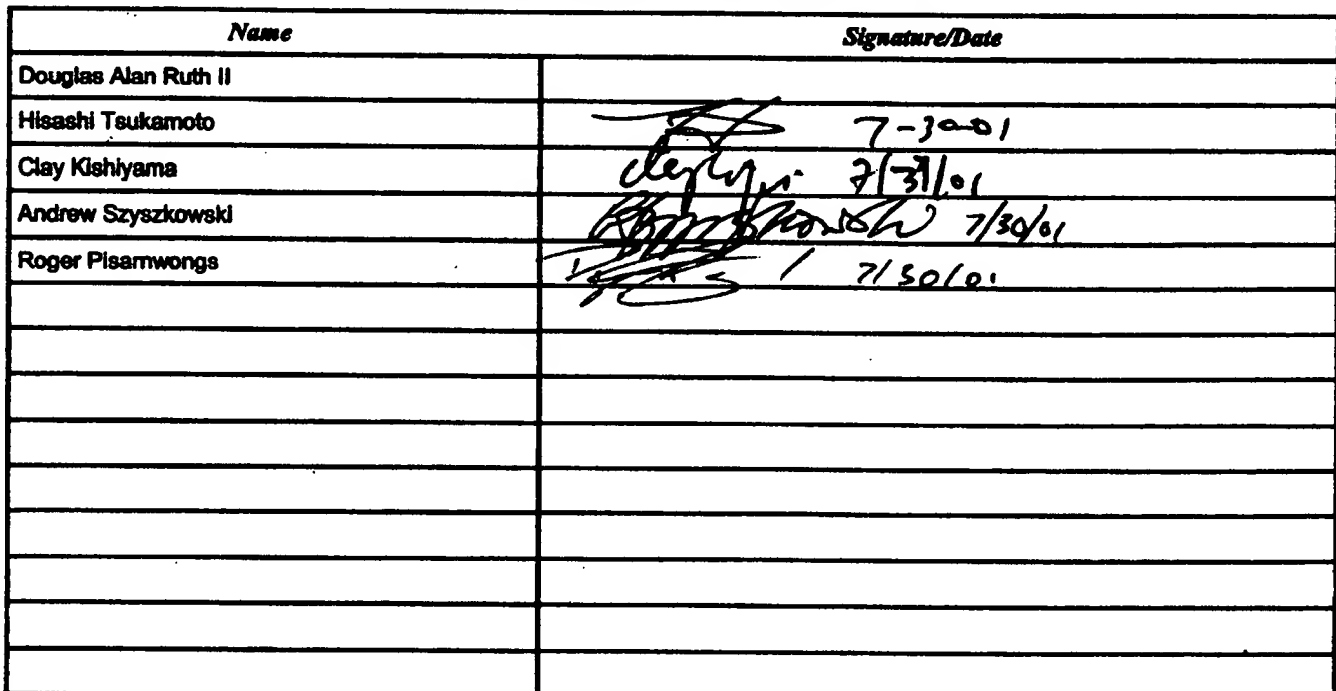 Name Signature/Date
Douglas Alan Ruth II
Hisashi Tsukamoto 7-30-01
Clay Kishiyama 7/31/01
Andrew Szyszkowski 7/30/01
Roger Pisarnwongs 7/30/01